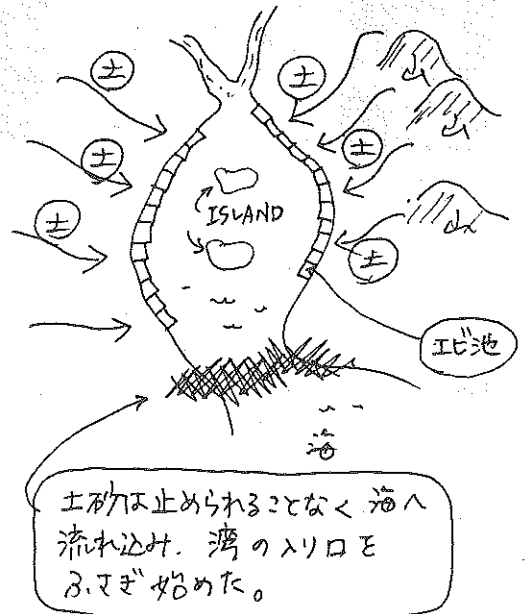 土
土
山
山
土
土
土
ISLAND
山
土
土
エビ池
海
土砂は止められることなく海へ
流れ込み、湾の入り口を
ふさぎ始めた。